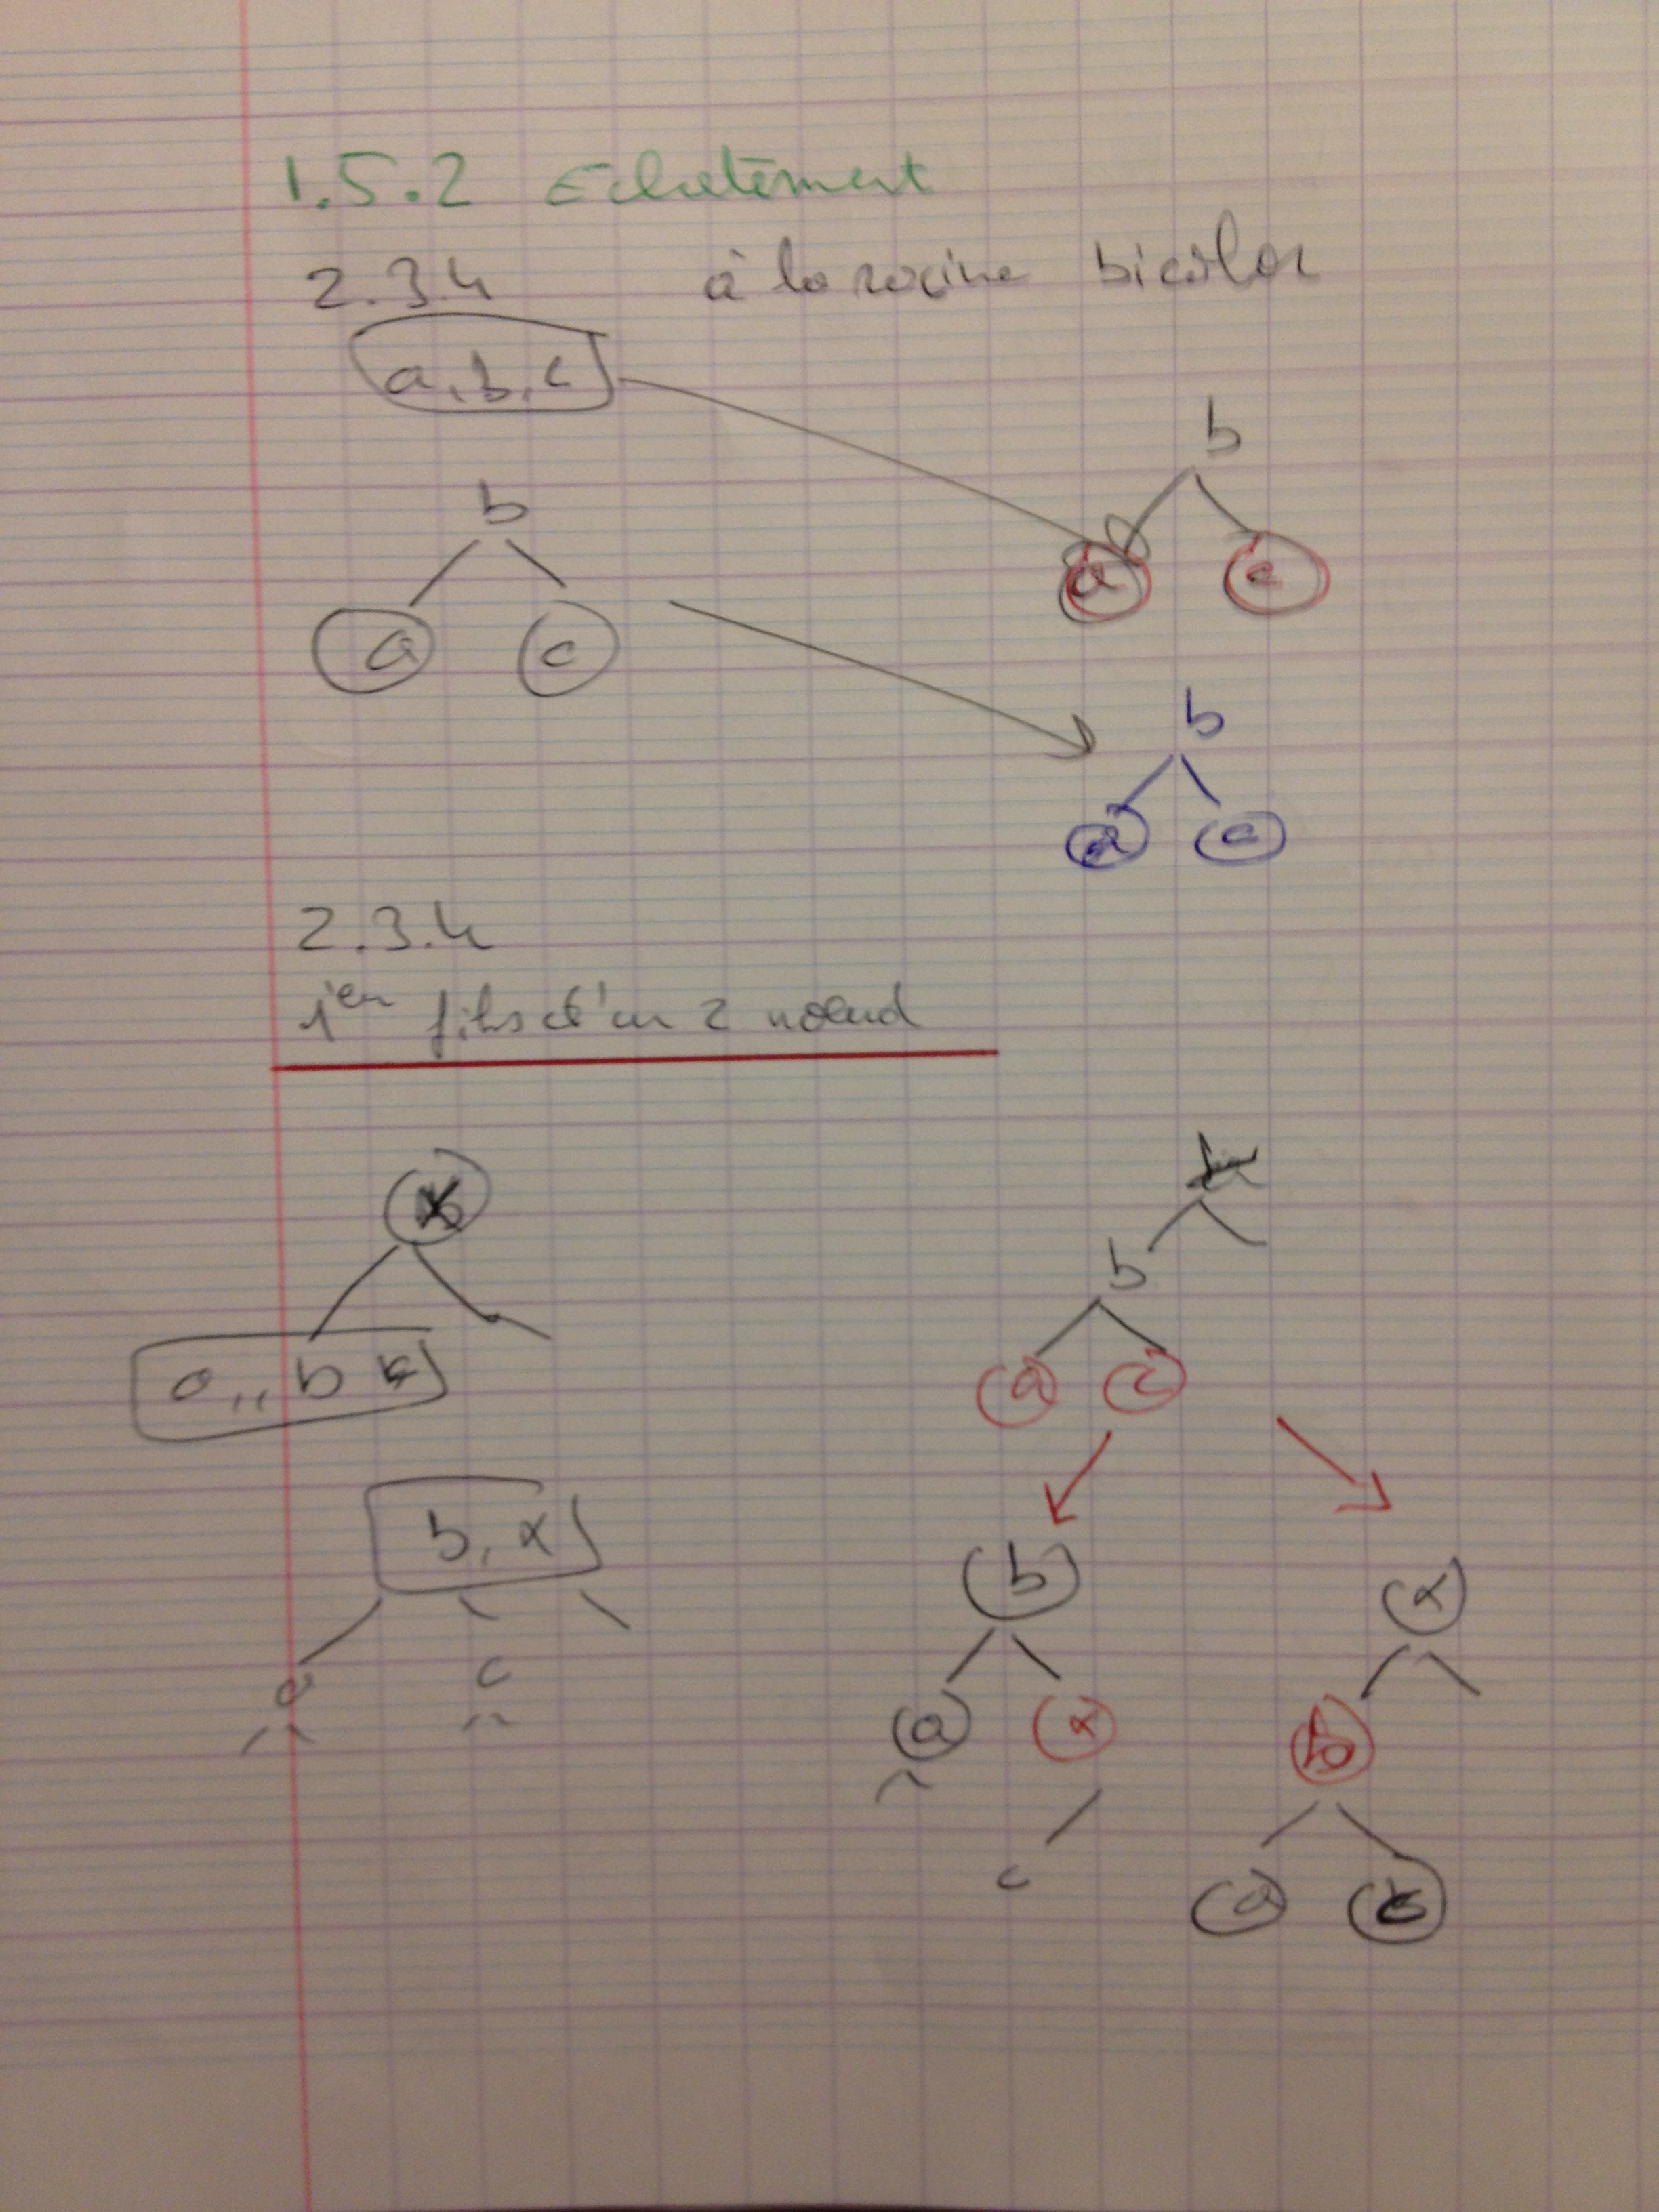 1.5.2 Eclatement
2.3.4 à la racine bicolor
a, b, c
b
a c
b
a c
b
a c
2.3.4
1er fils d'un 2 noeud
b
a c
a,, b
b, x
a c
b
a x
c
x
b
a c